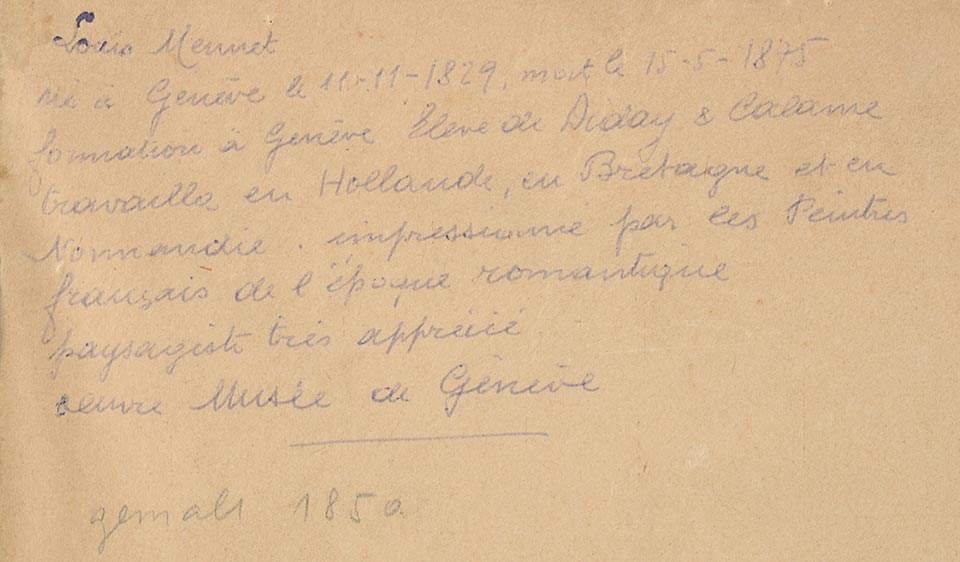 Louis Mennet
né à Genève le 11-11-1829, mort le 15-5-1875
formation à Genève Elève de Diday & Calame
travailla en Hollande, en Bretagne et en
Normandie. impressionné par les Peintres
français de l'époque romantique
paysagiste très apprécié
oeuvre Musée de Génève
gemalt 1850